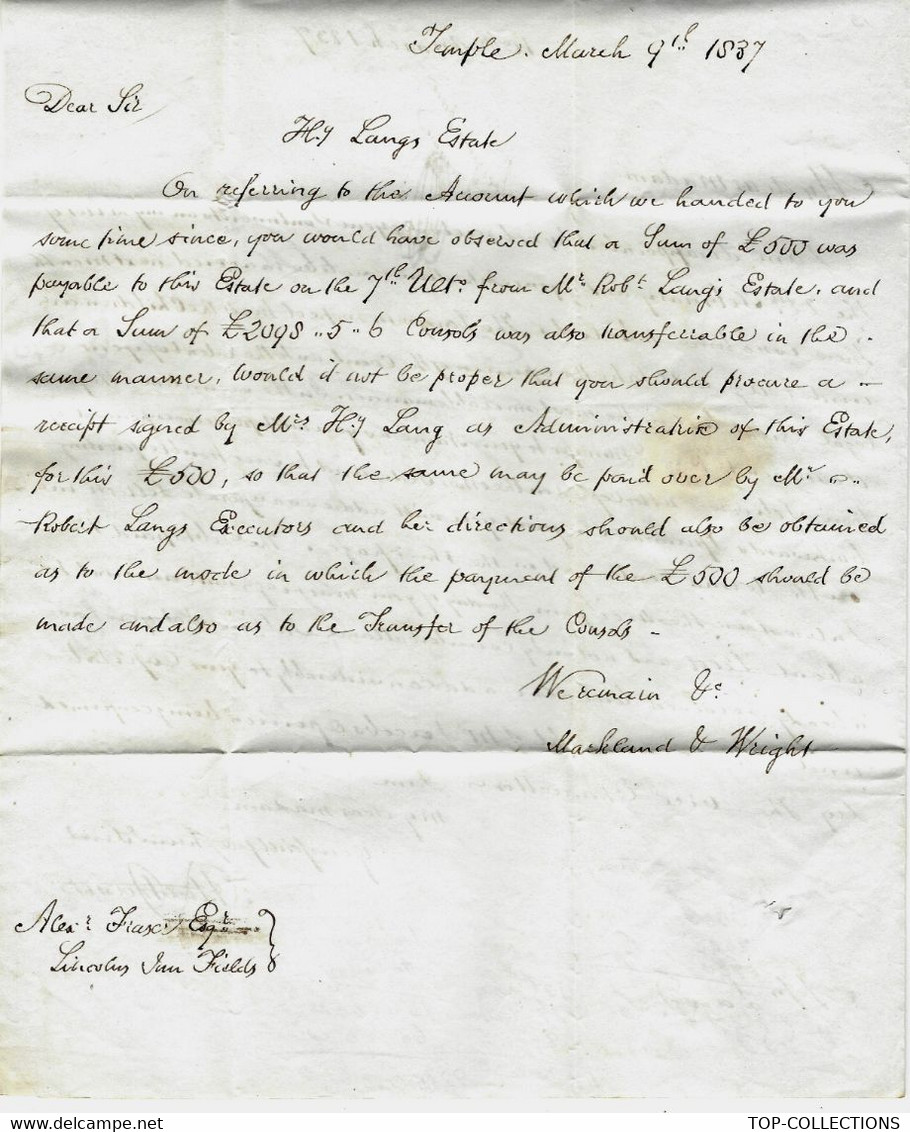 Temple. March 9th 1837
Dear Sir
Hy Langs Estate
On referring to the Account which we handed to you
some time since, you would have observed that a Sum of £500 was
payable to this Estate on the 7th Ulto. from Mr. Robt. Lang's Estate. and
that a Sum of £2098..5..6 Consols was also transferrable in the
same manner. Would it not be proper that you should procure a -
receipt signed by Mrs Hy Lang as Administratrix of this Estate,
for this £500, so that the same may be paid over by Mr.
Robert Langs Executors and her directions should also be obtained
as to the mode in which the payment of the £500 should be
made and also as to the Transfer of the Consols -
We remain &c
Markland & Wright
Alexr. Fraser Esqr.
Lincolns Inn Fields
TOP-COLLECTIONS